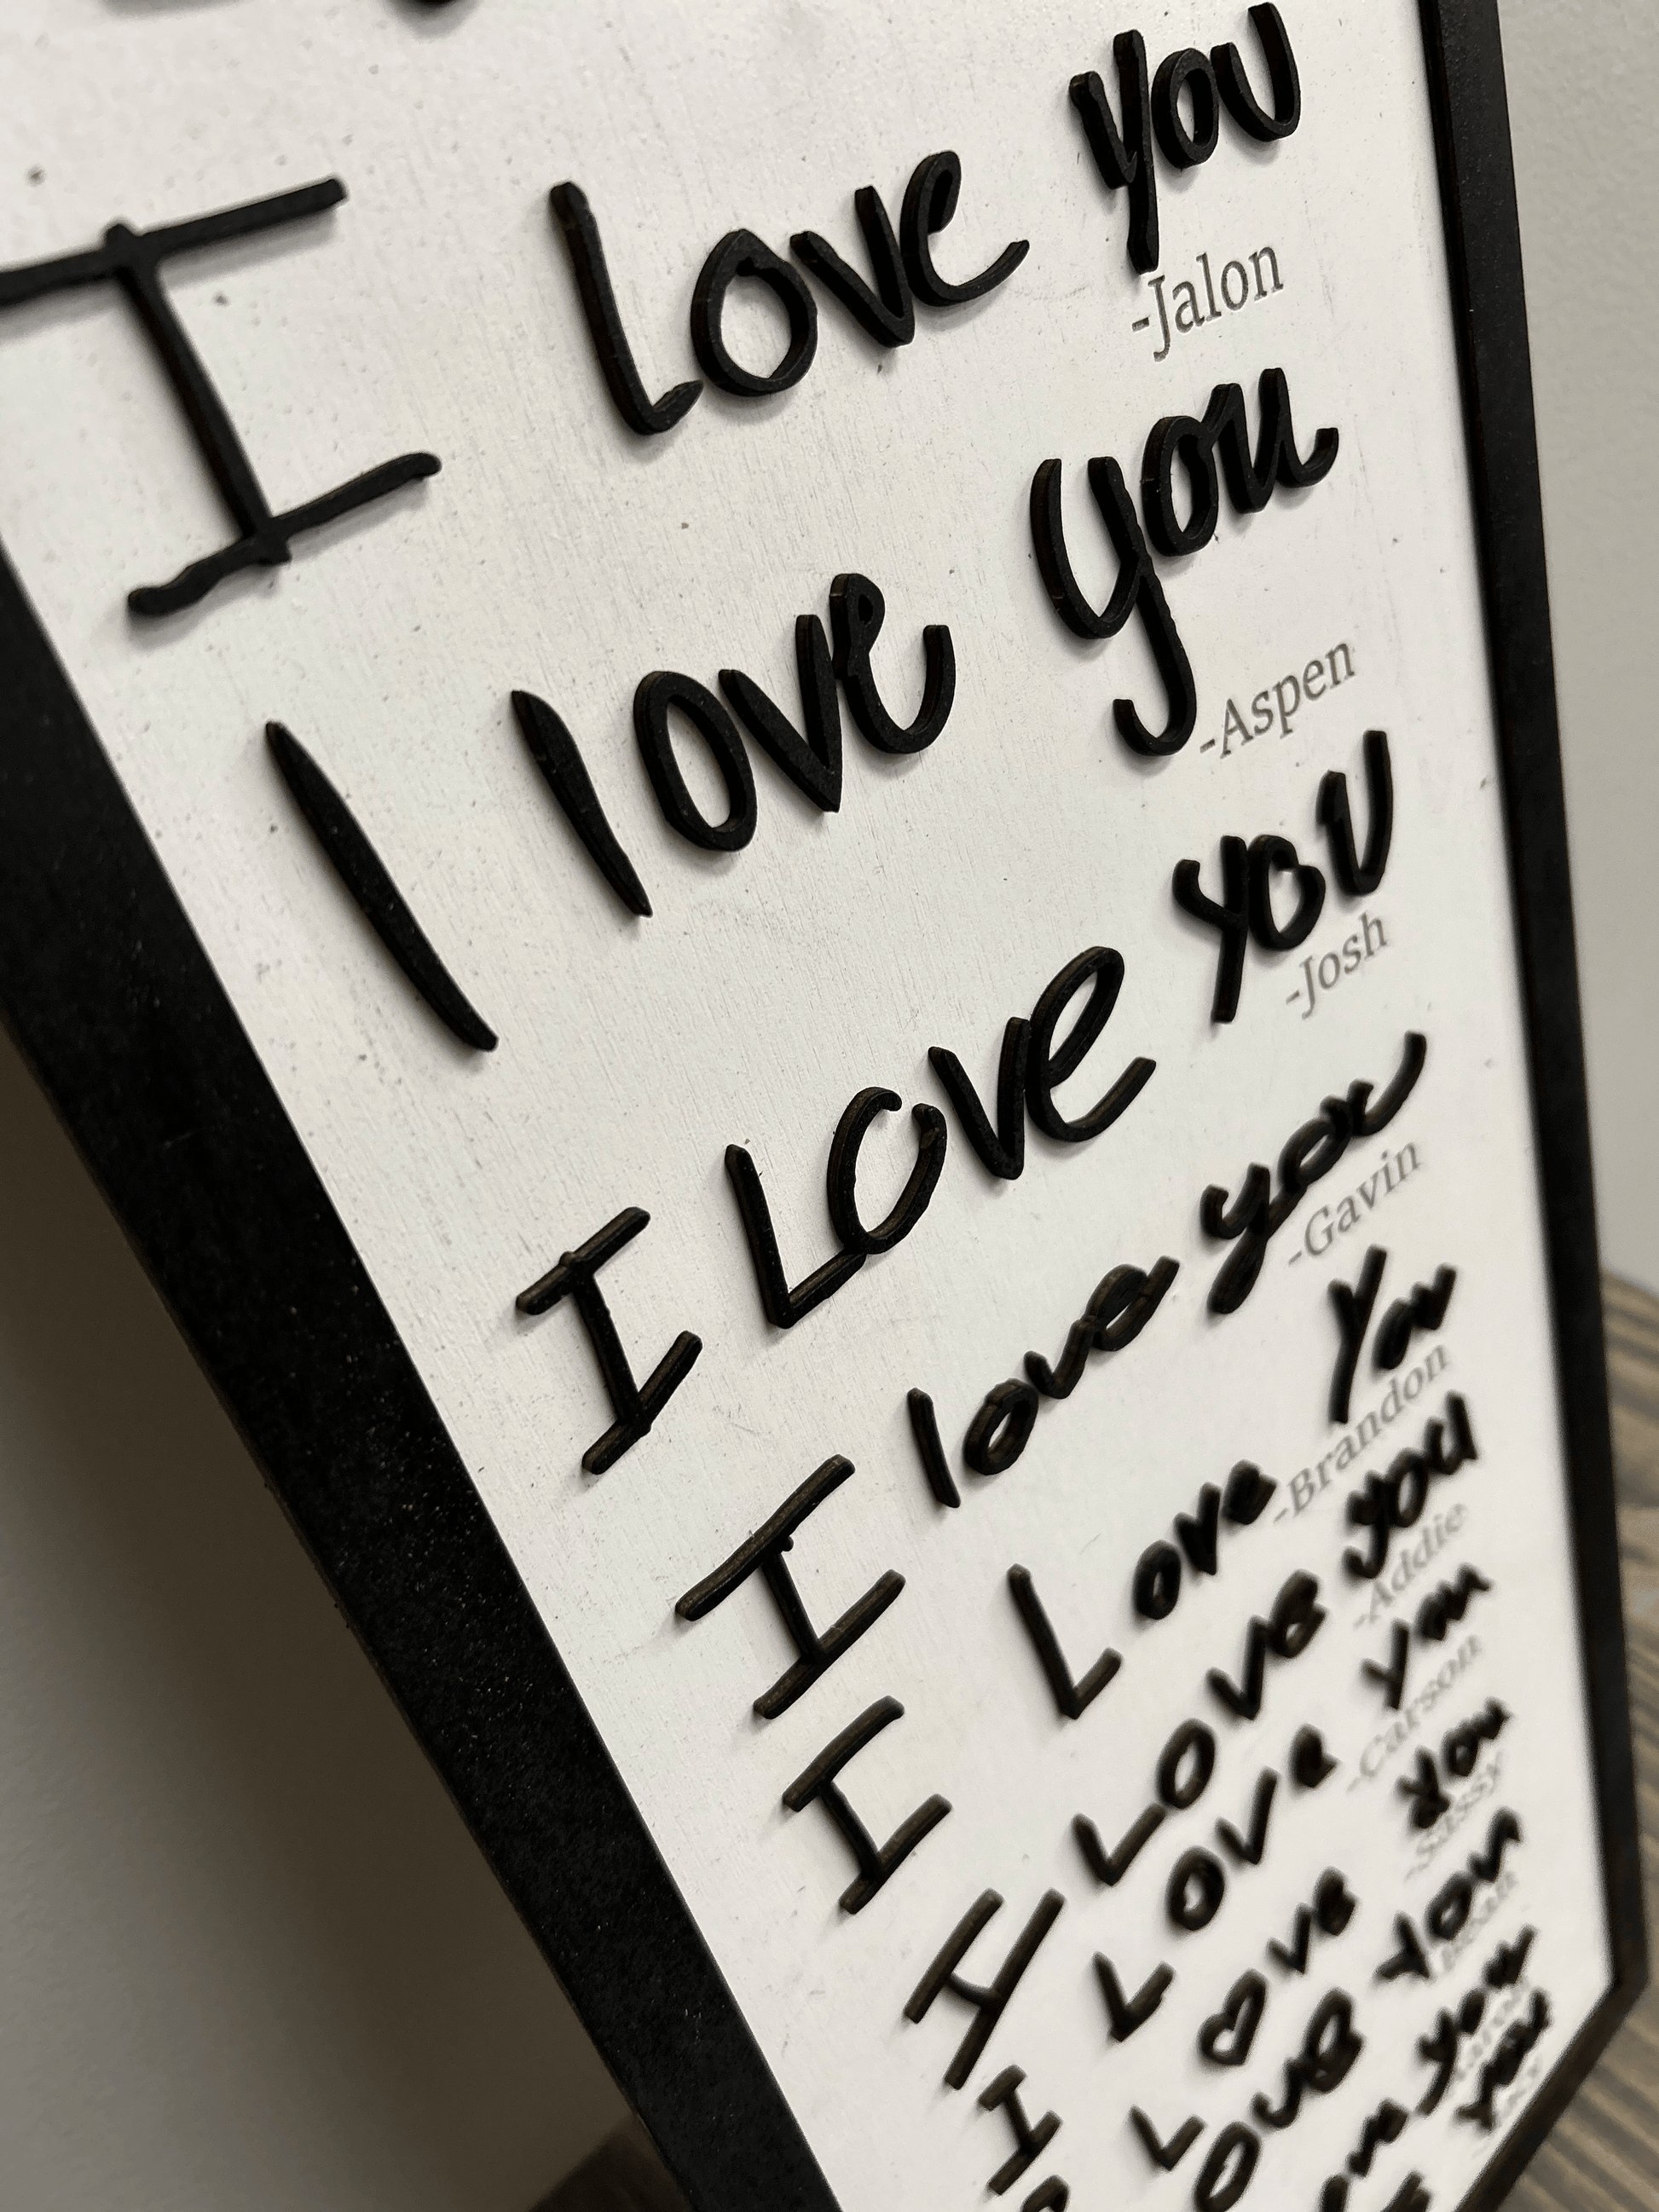 I Love you
-Jalon
I love you
-Aspen
I Love you
-Josh
I love you
-Gavin
I Love You
-Brandon
I Love you
-Addie
I Love You
-Carson
I Love You
-Sassy
Love You
you
you